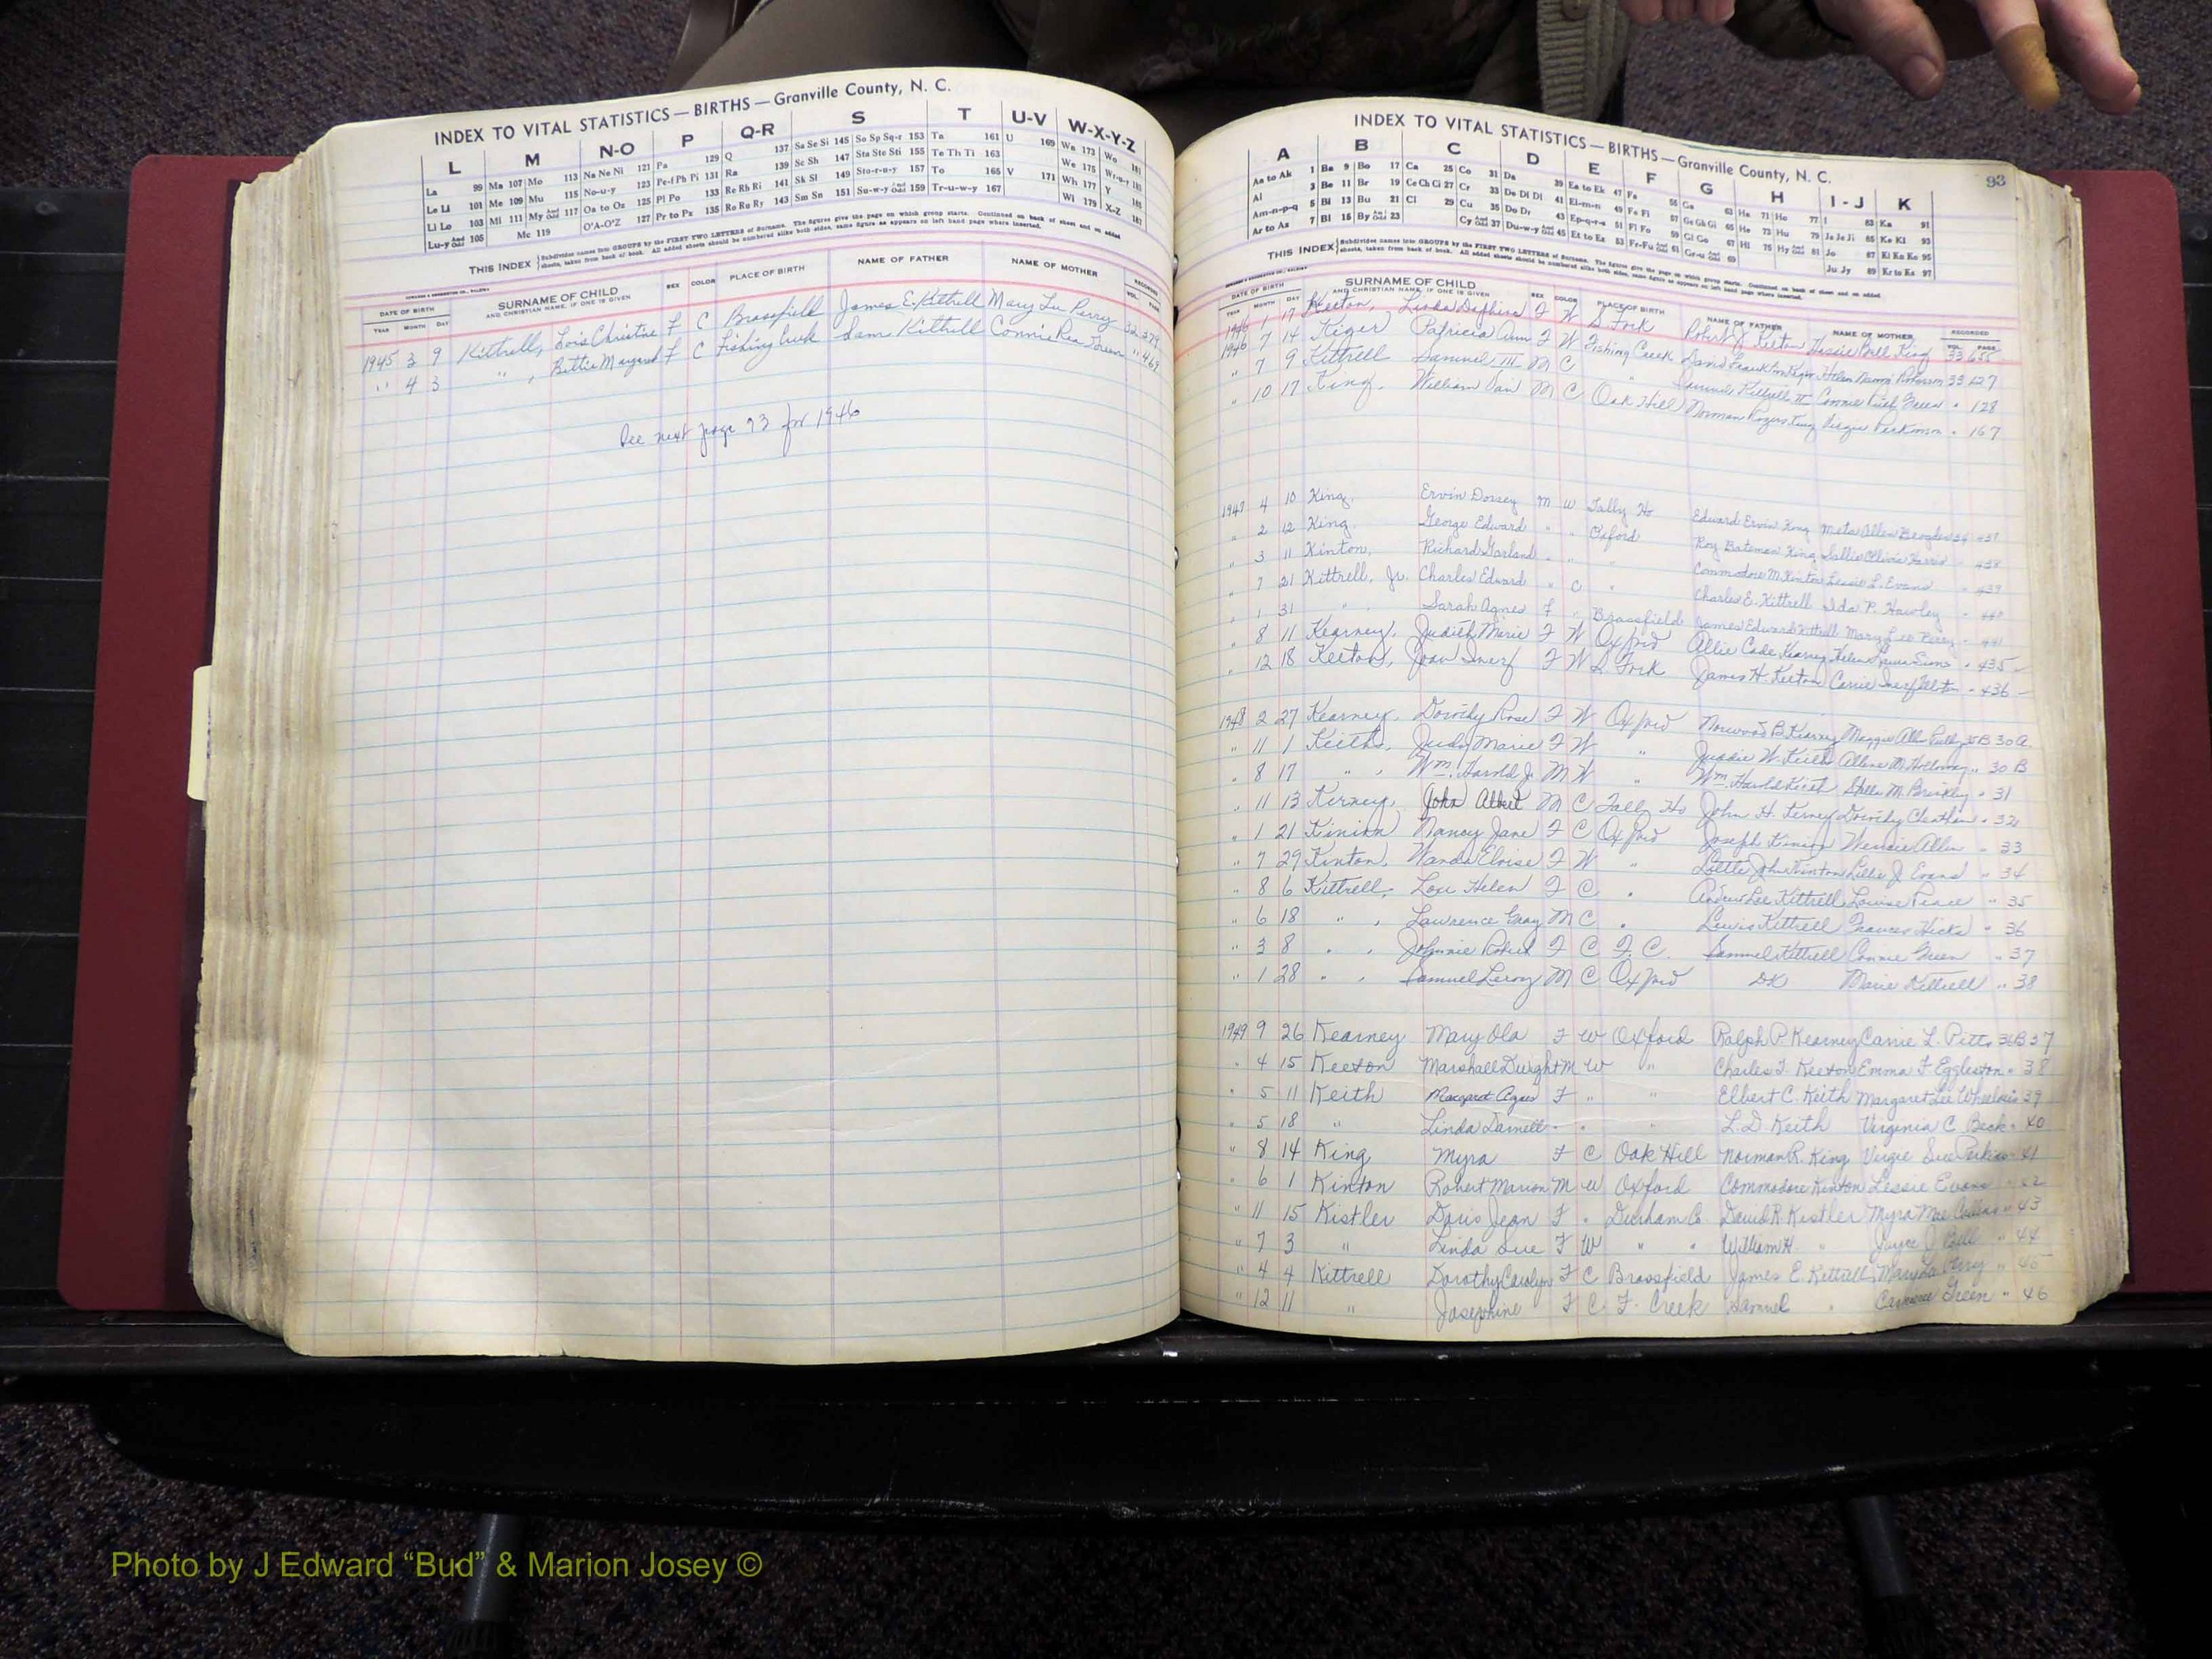 INDEX TO VITAL STATISTICS — BIRTHS — Granville County, N. C.
L M N-O P Q-R S T U-V W-X-Y-Z
La 99 Ma 107 Mo 113 Na Ne Ni 121 Pa 129 Q 137 Sa Se Si 145 So Sp Sq-r 153 Ta 161 U 169 Wa 173 Wo 181
Le Li 101 Me 109 Mu 115 No-u-y 123 Pe-f Ph Pi 131 Ra 139 Sc Sh 147 Sta Ste Sti 155 Te Th Ti 163 We 175 Wr-u-y 183
Ll Lo 103 Mi 111 My And Odd 117 Oa to Oz 125 Pl Po 133 Re Rh Ri 141 Sk Sl 149 Sto-r-u-y 157 To 165 V 171 Wh 177 Y 185
Lu-y And Odd 105 Mc 119 O'A-O'Z 127 Pr to Px 135 Ro Ru Ry 143 Sm Sn 151 Su-w-y And Odd 159 Tr-u-w-y 167 Wi 179 X-Z 187
THIS INDEX Subdivides names into GROUPS by the FIRST TWO LETTERS of Surname. The figures give the page on which group starts. Continued on back of sheet and on added
sheets, taken from back of book. All added sheets should be numbered alike both sides, same figure as appears on left hand page where inserted.
DATE OF BIRTH SURNAME OF CHILD SEX COLOR PLACE OF BIRTH NAME OF FATHER NAME OF MOTHER RECORDED
YEAR MONTH DAY AND CHRISTIAN NAME, IF ONE IS GIVEN VOL. PAGE
1945 3 9 Kittrell, Lois Christine F C Brassfield James E. Kittrell Mary Lu Perry 32 379
" 4 3 " , Bettie Margaret F C Fishing Creek Sam Kittrell Connie Rea Green " 469
See next page 93 for 1946
INDEX TO VITAL STATISTICS — BIRTHS — Granville County, N. C.
93
A B C D E F G H I - J K
Aa to Ak 1 Ba 9 Bo 17 Ca 25 Co 31 Da 39 Ea to Ek 47 Fa 55 Ga 63 Ha 71 Ho 77 I 83 Ka 91
Al 3 Be 11 Br 19 Ce Ch Ci 27 Cr 33 De Di Dl 41 El-m-n 49 Fe Fi 57 Ge Gh Gi 65 He 73 Hu 79 Ja Je Ji 85 Ke Ki 93
Am-n-p-q 5 Bi 13 Bu 21 Cl 29 Cu 35 Do Dr 43 Ep-q-r-s 51 Fl Fo 59 Gl Go 67 Hi 75 Hy And Odd 81 Jo 87 Kl Kn Ko 95
Ar to Az 7 Bl 15 By And Odd 23 Cy And Odd 37 Du-w-y And Odd 45 Et to Ez 53 Fr-Fu And Odd 61 Gr-u And Odd 69 Ju Jy 89 Kr to Kz 97
THIS INDEX Subdivides names into GROUPS by the FIRST TWO LETTERS of Surname. The figures give the page on which group starts. Continued on back of sheet and on added
sheets, taken from back of book. All added sheets should be numbered alike both sides, same figure as appears on left hand page where inserted.
DATE OF BIRTH SURNAME OF CHILD SEX COLOR PLACE OF BIRTH NAME OF FATHER NAME OF MOTHER RECORDED
YEAR MONTH DAY AND CHRISTIAN NAME, IF ONE IS GIVEN VOL. PAGE
1946 1 17 Keeton, Linda Daphine F W S. Fork Robert J. Keeton Hessie Bell King 33 655
1946 7 14 Kiger, Patricia Ann F W Fishing Creek David Franklin Kiger Helen 33 127
" 7 9 Kittrell Samuel III M C " Samuel Kittrell II Connie Green " 128
" 10 17 King, William Dan M C Oak Hill Norman Rogers King Virgie Perkinson " 167
1947 4 10 King, Ervin Dorsey M W Tally Ho Edward Ervin King Meta Allen Brogden 34 437
" 2 12 King, George Edward " " Oxford Roy Bateman King Sallie Harris " 438
" 3 11 Kinton, Richard Garland " " " Commodore M. Kinton Lessie L. Evans " 439
" 7 21 Kittrell, Jr. Charles Edward " C " Charles E. Kittrell Ida P. Hawley " 440
" 1 31 " , Sarah Agnes F " Brassfield James Edward Kittrell Mary Lee Perry " 441
" 8 11 Kearney, Judith Marie F W Oxford Allie Cade Kearney Helen Sims " 435
" 12 18 Keeton, Joan Inez F W S. Fork James H. Keeton Carrie Inez " 436
1948 2 27 Kearney, Dorothy Rose F W Oxford Norwood B. Kearney Maggie 35B 30 A
" 11 1 Keith, Judy Marie F W " Juddie W. Keith Allene M. Holloway " 30 B
" 8 17 " , Wm. Harold Jr. M W " Wm. Harold Keith Stella M. Brinkley " 31
" 11 13 Kerney, John Albert M C Tally Ho John H. Kerney Dorothy Cheatham " 32
" 1 21 Kinion Nancy Jane F C Oxford Joseph Kinion Allen " 33
" 7 29 Kinton, Wanda Eloise F W " John Kinton Lillie J. Evans " 34
" 8 6 Kittrell, Lou Helen F C " Andrew Lee Kittrell Louise Peace " 35
" 6 18 " , Lawrence Gray M C " Lewis Kittrell Frances Hicks " 36
" 3 8 " , Johnnie Robert F C F. C. Samuel Kittrell Connie Green " 37
" 1 28 " , Samuel Leroy M C Oxford DK Marie Kittrell " 38
1949 9 26 Kearney Mary Ola F W Oxford Ralph P. Kearney Carrie L. Pitts 36B 37
" 4 15 Keeton Marshall Dwight M W " Charles F. Keeton Emma F. Eggleston " 38
" 5 11 Keith Margaret Agnes F " " Elbert C. Keith Margaret Lee 39
" 5 18 " Linda Darnell " " " L. D. Keith Virginia C. Beck " 40
" 8 14 King Myra F C Oak Hill Norman R. King Virgie Sue 41
" 6 1 Kinton Robert Marion M W Oxford Commodore Kinton Lessie Evans 42
" 11 15 Kistler Doris Jean F " Durham Co. David R. Kistler Myra Mae " 43
" 7 3 " Linda Sue F W " " William H. " Joyce J. " 44
" 4 4 Kittrell Dorothy Carolyn F C Brassfield James E. Kittrell Mary Lu Perry " 45
" 12 11 " Josephine F C F. Creek Samuel " Green " 46
Photo by J Edward “Bud” & Marion Josey ©